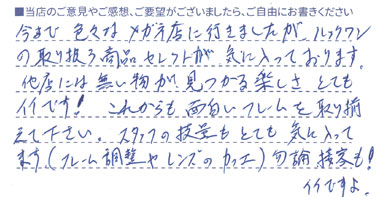 ■当店のご意見やご感想、ご要望がございましたら、ご自由にお書きください
今まで色々なメガネ店に行きましたがルックワン
の取り扱う商品セレクトが気に入っております。
他店には無い物が見つかる楽しさとても
イイです!これからも面白いフレームを取り揃
えて下さい。スタッフの技量もとても気に入って
ます(フレーム調整やレンズのカッエ)勿論接客も!
イイですよ。